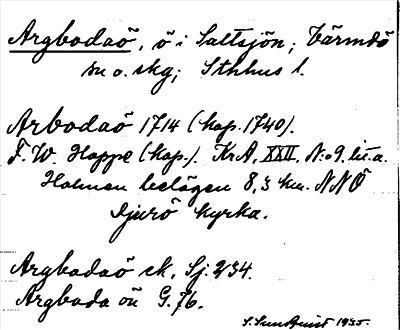 Argbodaö, ö i Saltsjön; Värmdö
sn o. skg; Sthlms l.
Arbodaö 1714 (kop. 1740).
F. W. Hoppe (kop.). KrA, XXII, N:o 9. lit. a.
Holmen belägen 8,3 km. NNÖ
Djurö kyrka.
Argbodaö ek. Sj. 234.
Argboda ön G. 76.
S. Sundquist 1935.